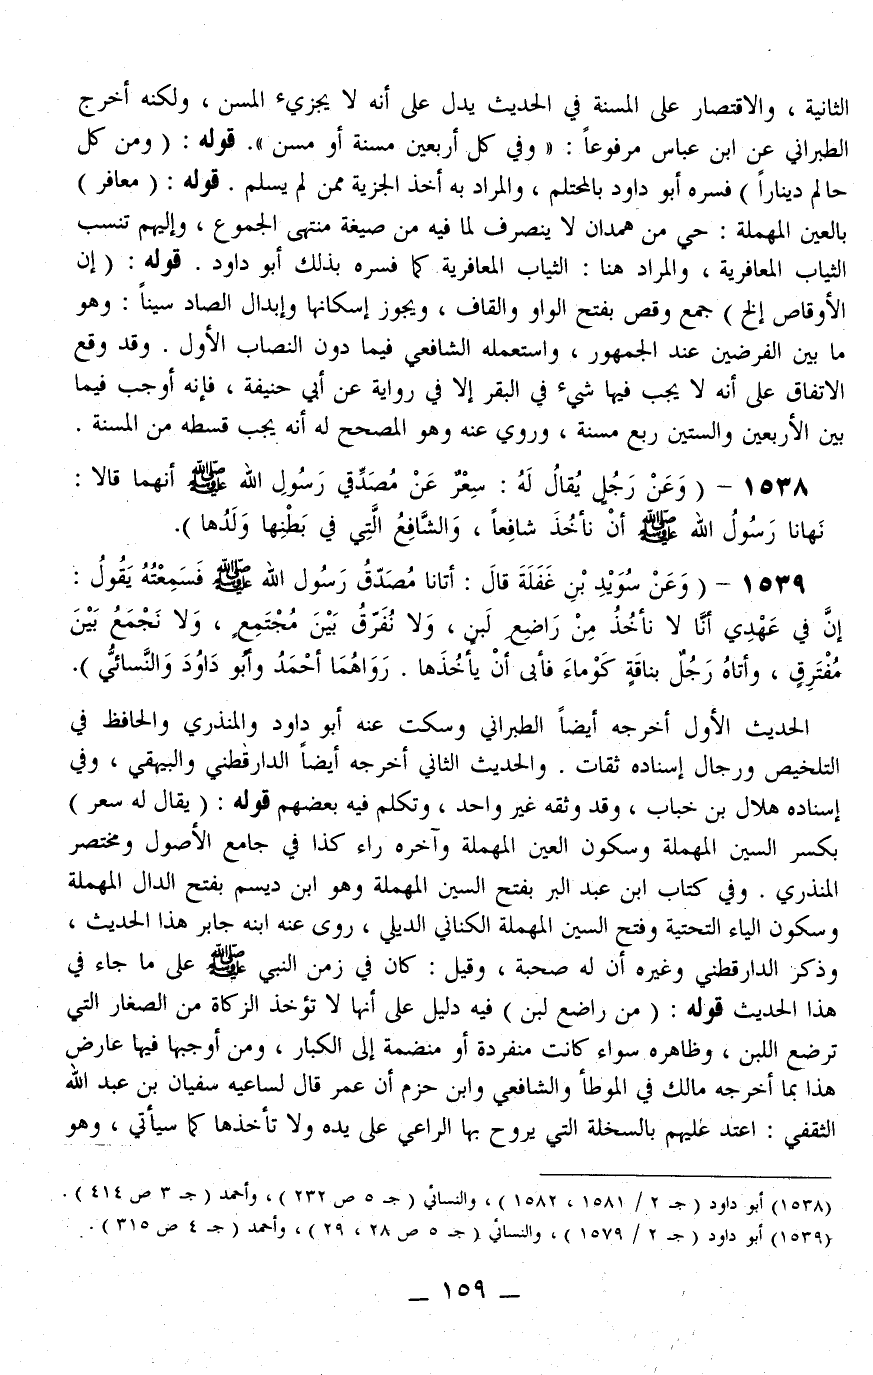 الثانية ، والاقتصار على المسنة في الحديث يدل على أنه لا يجزيء المسن ، ولكنه أخرج
الطبراني عن ابن عباس مرفوعاً : « وفي كل أربعين مسنة أو مسن ». قوله : ( ومن كل
حالم ديناراً ) فسره أبو داود بالمحتلم ، والمراد به أخذ الجزية ممن لم يسلم . قوله : ( معافر )
بالعين المهملة : حي من همدان لا ينصرف لما فيه من صيغة منتهى الجموع ، وإليهم تنسب
الثياب المعافرية ، والمراد هنا : الثياب المعافرية كما فسره بذلك أبو داود . قوله : ( إن
الأوقاص إلخ ) جمع وقص بفتح الواو والقاف ، ويجوز إسكانها وإبدال الصاد سيناً : وهو
ما بين الفرضين عند الجمهور ، واستعمله الشافعي فيما دون النصاب الأول . وقد وقع
الاتفاق على أنه لا يجب فيها شيء في البقر إلا في رواية عن أبي حنيفة ، فإنه أوجب فيما
بين الأربعين والستين ربع مسنة ، وروي عنه وهو المصحح له أنه يجب قسطه من المسنة .
١٥٣٨ – ( وَعَنْ رَجُلٍ يُقالُ لَهُ : سِعْرٌ عَنْ مُصَدِّقي رَسُولِ الله ﷺ أنهما قالا :
نَهانا رَسُولُ الله ﷺ أنْ نأخُذَ شافِعاً ، وَالشَّافِعُ الَّتِي في بَطْنِها وَلَدُها ).
١٥٣٩ – ( وَعَنْ سُوَيْدِ بْنِ غَفَلَةَ قالَ : أتانا مُصَدّقُ رَسُول الله ﷺ فَسَمِعْتُهُ يَقُولُ :
إنَّ في عَهْدِي أنَّا لا نأخُذُ مِنْ رَاضِعِ لَبنٍ ، وَلا نُفَرّقُ بَيْنَ مُجْتَمِعٍ ، وَلا نَجْمَعُ بَيْنَ
مُفْتَرِقٍ ، وأتاهُ رَجُلٌ بناقَةٍ كَوْماءَ فأبى أنْ يأْخُذَها . رَوَاهُمَا أحْمَدُ وأبُو دَاوُدَ وَالنَّسائيُّ ).
الحديث الأول أخرجه أيضاً الطبراني وسكت عنه أبو داود والمنذري والحافظ في
التلخيص ورجال إسناده ثقات . والحديث الثاني أخرجه أيضاً الدارقطني والبيهقي ، وفي
إسناده هلال بن خباب ، وقد وثقه غير واحد ، وتكلم فيه بعضهم قوله : ( يقال له سعر )
بكسر السين المهملة وسكون العين المهملة وآخره راء كذا في جامع الأصول ومختصر
المنذري . وفي كتاب ابن عبد البر بفتح السين المهملة وهو ابن ديسم بفتح الدال المهملة
وسكون الياء التحتية وفتح السين المهملة الكناني الديلي ، روى عنه ابنه جابر هذا الحديث ،
وذكر الدارقطني وغيره أن له صحبة ، وقيل : كان في زمن النبي ﷺ على ما جاء في
هذا الحديث قوله : ( من راضع لبن ) فيه دليل على أنها لا تؤخذ الزكاة من الصغار التي
ترضع اللبن ، وظاهره سواء كانت منفردة أو منضمة إلى الكبار ، ومن أوجبها فيها عارض
هذا بما أخرجه مالك في الموطأ والشافعي وابن حزم أن عمر قال لساعيه سفيان بن عبد الله
الثقفي : اعتد عليهم بالسخلة التي يروح بها الراعي على يده ولا تأخذها كما سيأتي ، وهو
(١٥٣٨) أبو داود ( جـ ٢ / ١٥٨١ ، ١٥٨٢ ) ، والنسائي ( جـ ٥ ص ٢٣٢ ) ، وأحمد ( جـ ٣ ص ٤١٤ ) .
(١٥٣٩) أبو داود ( جـ ٢ / ١٥٧٩ ) ، والنسائي ( جـ ٥ ص ٢٨ ، ٢٩ ) ، وأحمد ( جـ ٤ ص ٣١٥ ) .
– ١٥٩ –